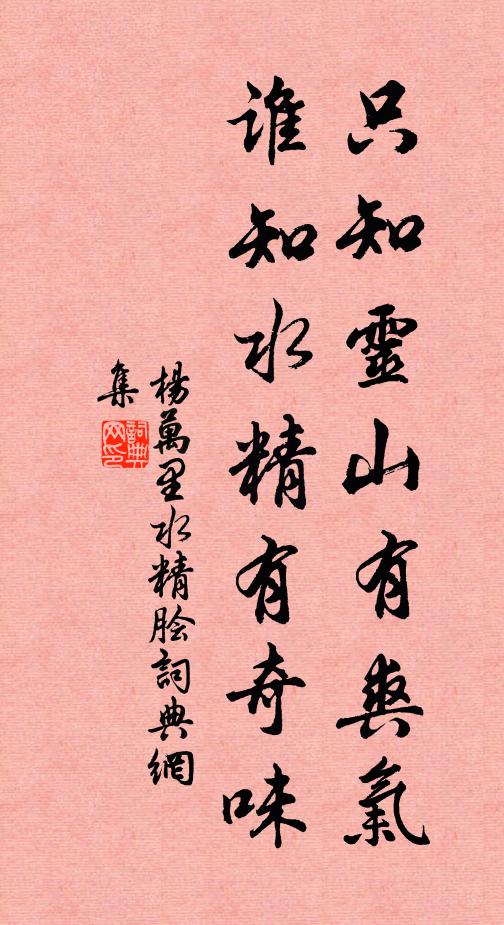 只知靈山有爽氣
誰知水精有奇味
楊萬里水精膾詞典網
集
詞典网印